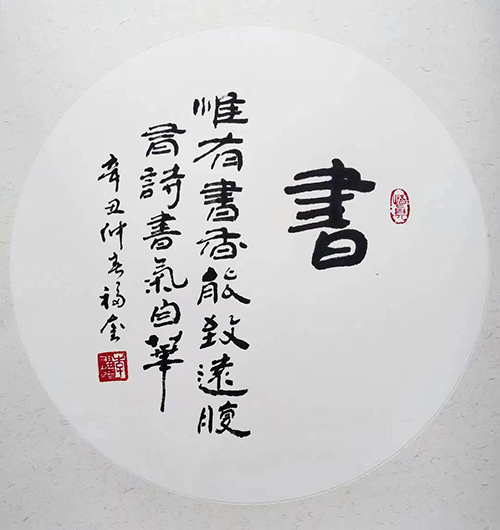 書
惟有書香能致遠腹
有詩書氣自華
辛丑仲春福奎